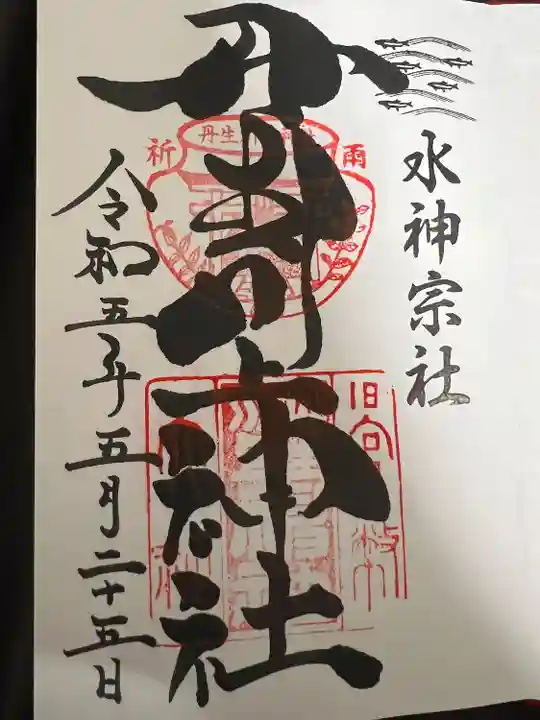 水神宗社
丹生川上神社
令和五年五月二十五日
雨
祈
丹生
旧官